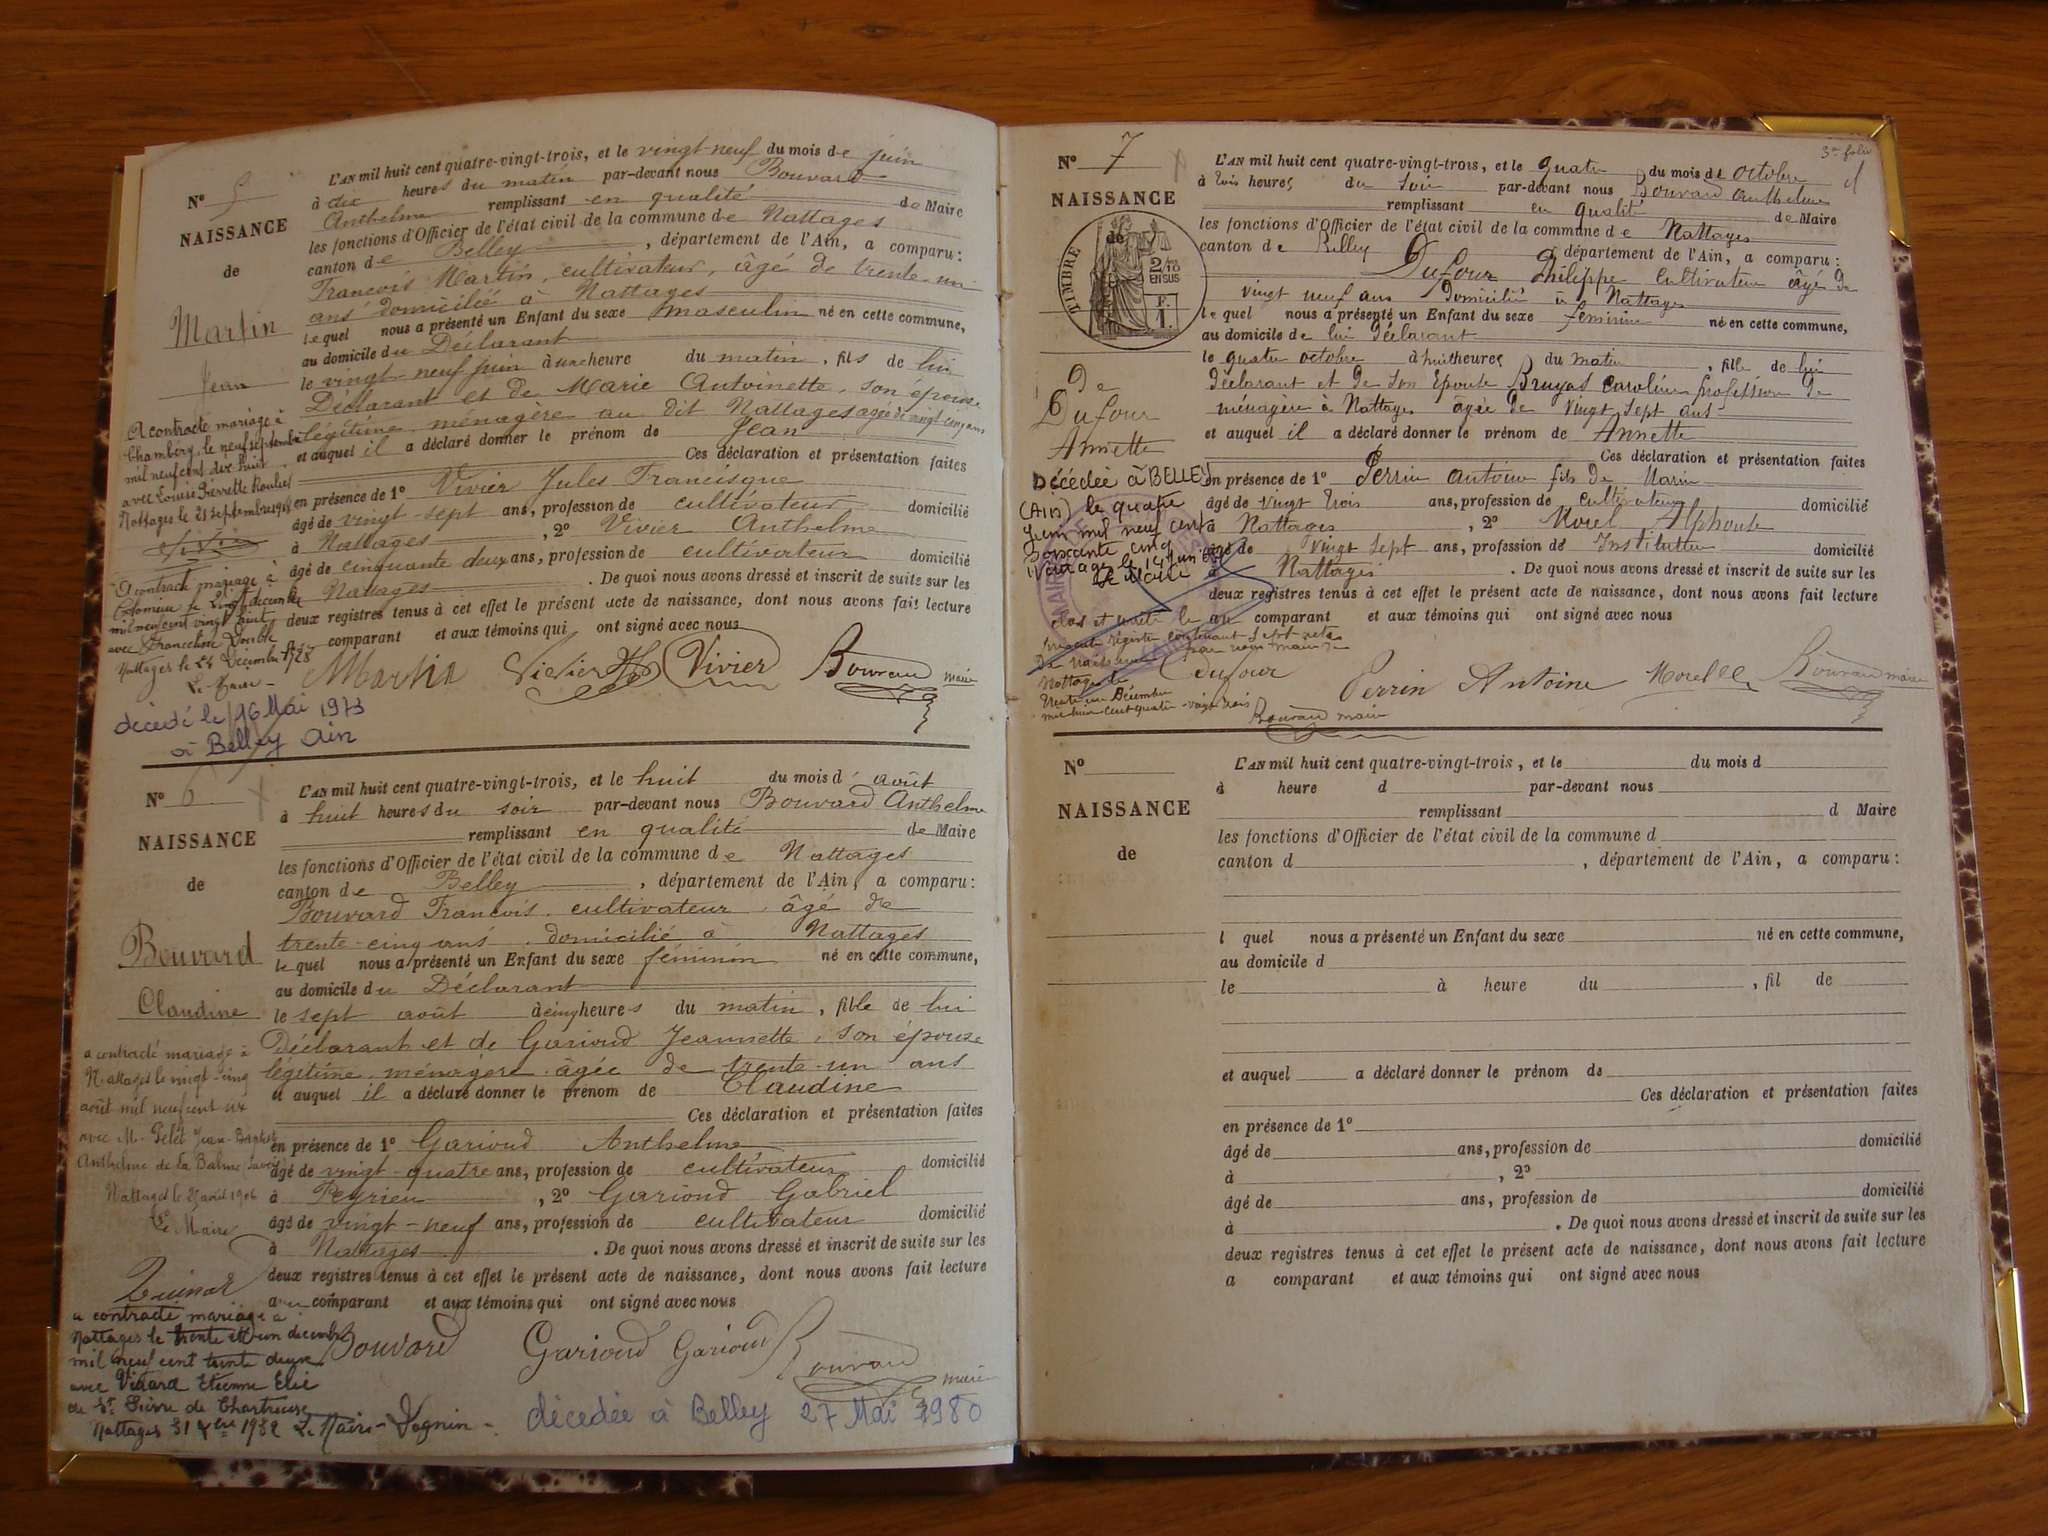 N° 5
NAISSANCE
de
Martin
Jean
L'AN mil huit cent quatre-vingt-trois, et le vingt-neuf du mois de juin
à dix heures du matin par-devant nous Bouvard
Anthelme remplissant en qualité de Maire
les fonctions d'Officier de l'état civil de la commune de Nattages
canton de Belley, département de l'Ain, a comparu:
François Martin, cultivateur, âgé de trente-un
ans domicilié à Nattages
lequel nous a présenté un Enfant du sexe masculin né en cette commune,
au domicile du Déclarant
le vingt-neuf juin à une heure du matin, fils de lui
Déclarant et de Marie Antoinette, son épouse
légitime, ménagère au dit Nattages agée de vingt-cinq ans
et auquel il a déclaré donner le prénom de Jean
Ces déclaration et présentation faites
en présence de 1° Vivier Jules Francisque
âgé de vingt-sept ans, profession de cultivateur domicilié
à Nattages, 2° Vivier Anthelme
âgé de cinquante deux ans, profession de cultivateur domicilié
Nattages. De quoi nous avons dressé et inscrit de suite sur les
deux registres tenus à cet effet le présent acte de naissance, dont nous avons fait lecture
au comparant et aux témoins qui ont signé avec nous
Martin Vivier Vivier Bouvard maire
A contracté mariage à
Chambéry, le neuf septembre
mil neuf cent dix huit
avec Louise Pierrette
Nattages le 21 septembre 1918
A contracté mariage à
le vingt decembre
mil neuf cent vingt huit
avec Franceline
Nattages le 24 Décembre 1928
Le Maire
décédé le 16 Mai 1973
à Belley Ain
N° 6
NAISSANCE
de
Bouvard
Claudine
L'AN mil huit cent quatre-vingt-trois, et le huit du mois d' août
à huit heures du soir par-devant nous Bouvard Anthelme
remplissant en qualité de Maire
les fonctions d'Officier de l'état civil de la commune de Nattages
canton de Belley, département de l'Ain, a comparu:
Bouvard François, cultivateur, âgé de
trente-cinq ans, domicilié à Nattages
lequel nous a présenté un Enfant du sexe féminin né en cette commune,
au domicile du Déclarant
le sept août à cinq heures du matin, fille de lui
Déclarant et de Gariond Jeannette, son épouse
légitime, ménagère, âgée de trente-un ans
et auquel il a déclaré donner le prénom de Claudine
Ces déclaration et présentation faites
en présence de 1° Gariond Anthelme
âgé de vingt-quatre ans, profession de cultivateur domicilié
à Peyrieu, 2° Gariond Gabriel
âgé de vingt-neuf ans, profession de cultivateur domicilié
à Nattages. De quoi nous avons dressé et inscrit de suite sur les
deux registres tenus à cet effet le présent acte de naissance, dont nous avons fait lecture
au comparant et aux témoins qui ont signé avec nous
Bouvard Gariond Gariond Bouvard maire
a contracté mariage à
Nattages le vingt-cinq
août mil neuf cent six
avec M. Pelet Jean-Baptiste
Anthelme de la Balme
Nattages le 25 août 1906
Le Maire
a contracté mariage à
Nattages le trente et un décembre
mil neuf cent trente deux
avec Vidard Etienne Elie
de St Pierre de Chartreuse
Nattages 31 Xbre 1932 Le Maire - Vognin -
décédée à Belley 27 Mai 1980
3e folio
N° 7
NAISSANCE
de
TIMBRE
2/10
EN SUS
F.
1.
De
Dufour
Annette
L'AN mil huit cent quatre-vingt-trois, et le quatre du mois de octobre
à trois heures du soir par-devant nous Bouvard Anthelme
remplissant en qualité de Maire
les fonctions d'Officier de l'état civil de la commune de Nattages
canton de Belley département de l'Ain, a comparu:
Dufour Philippe cultivateur âgé de
vingt neuf ans domicilié à Nattages
lequel nous a présenté un Enfant du sexe féminin né en cette commune,
au domicile de lui déclarant
le quatre octobre à huit heures du matin, fille de lui
déclarant et de son épouse Bruyas Caroline profession de
ménagère à Nattages âgée de vingt sept ans
et auquel il a déclaré donner le prénom de Annette
Ces déclaration et présentation faites
en présence de 1° Perrin Antoine fils de Marin
âgé de vingt trois ans, profession de cultivateur domicilié
à Nattages, 2° Morel Alphonse
âgé de vingt sept ans, profession de Instituteur domicilié
à Nattages. De quoi nous avons dressé et inscrit de suite sur les
deux registres tenus à cet effet le présent acte de naissance, dont nous avons fait lecture
au comparant et aux témoins qui ont signé avec nous
Dufour Perrin Antoine Morel Bouvard maire
Décédée à BELLEY
(AIN) le quatre
Juin mil neuf cent
soixante cinq
Le Maire
clos et arrêté le
présent registre contenant sept actes
de naissance par nous maire de
Nattages le
trente un Décembre
mil huit cent quatre-vingt trois
Bouvard maire
N°
NAISSANCE
de
L'AN mil huit cent quatre-vingt-trois, et le du mois d
à heure d par-devant nous
remplissant d Maire
les fonctions d'Officier de l'état civil de la commune d
canton d , département de l'Ain, a comparu:
l quel nous a présenté un Enfant du sexe né en cette commune,
au domicile d
le à heure du , fil de
et auquel a déclaré donner le prénom de
Ces déclaration et présentation faites
en présence de 1°
âgé de ans, profession de domicilié
à , 2°
âgé de ans, profession de domicilié
à . De quoi nous avons dressé et inscrit de suite sur les
deux registres tenus à cet effet le présent acte de naissance, dont nous avons fait lecture
a comparant et aux témoins qui ont signé avec nous